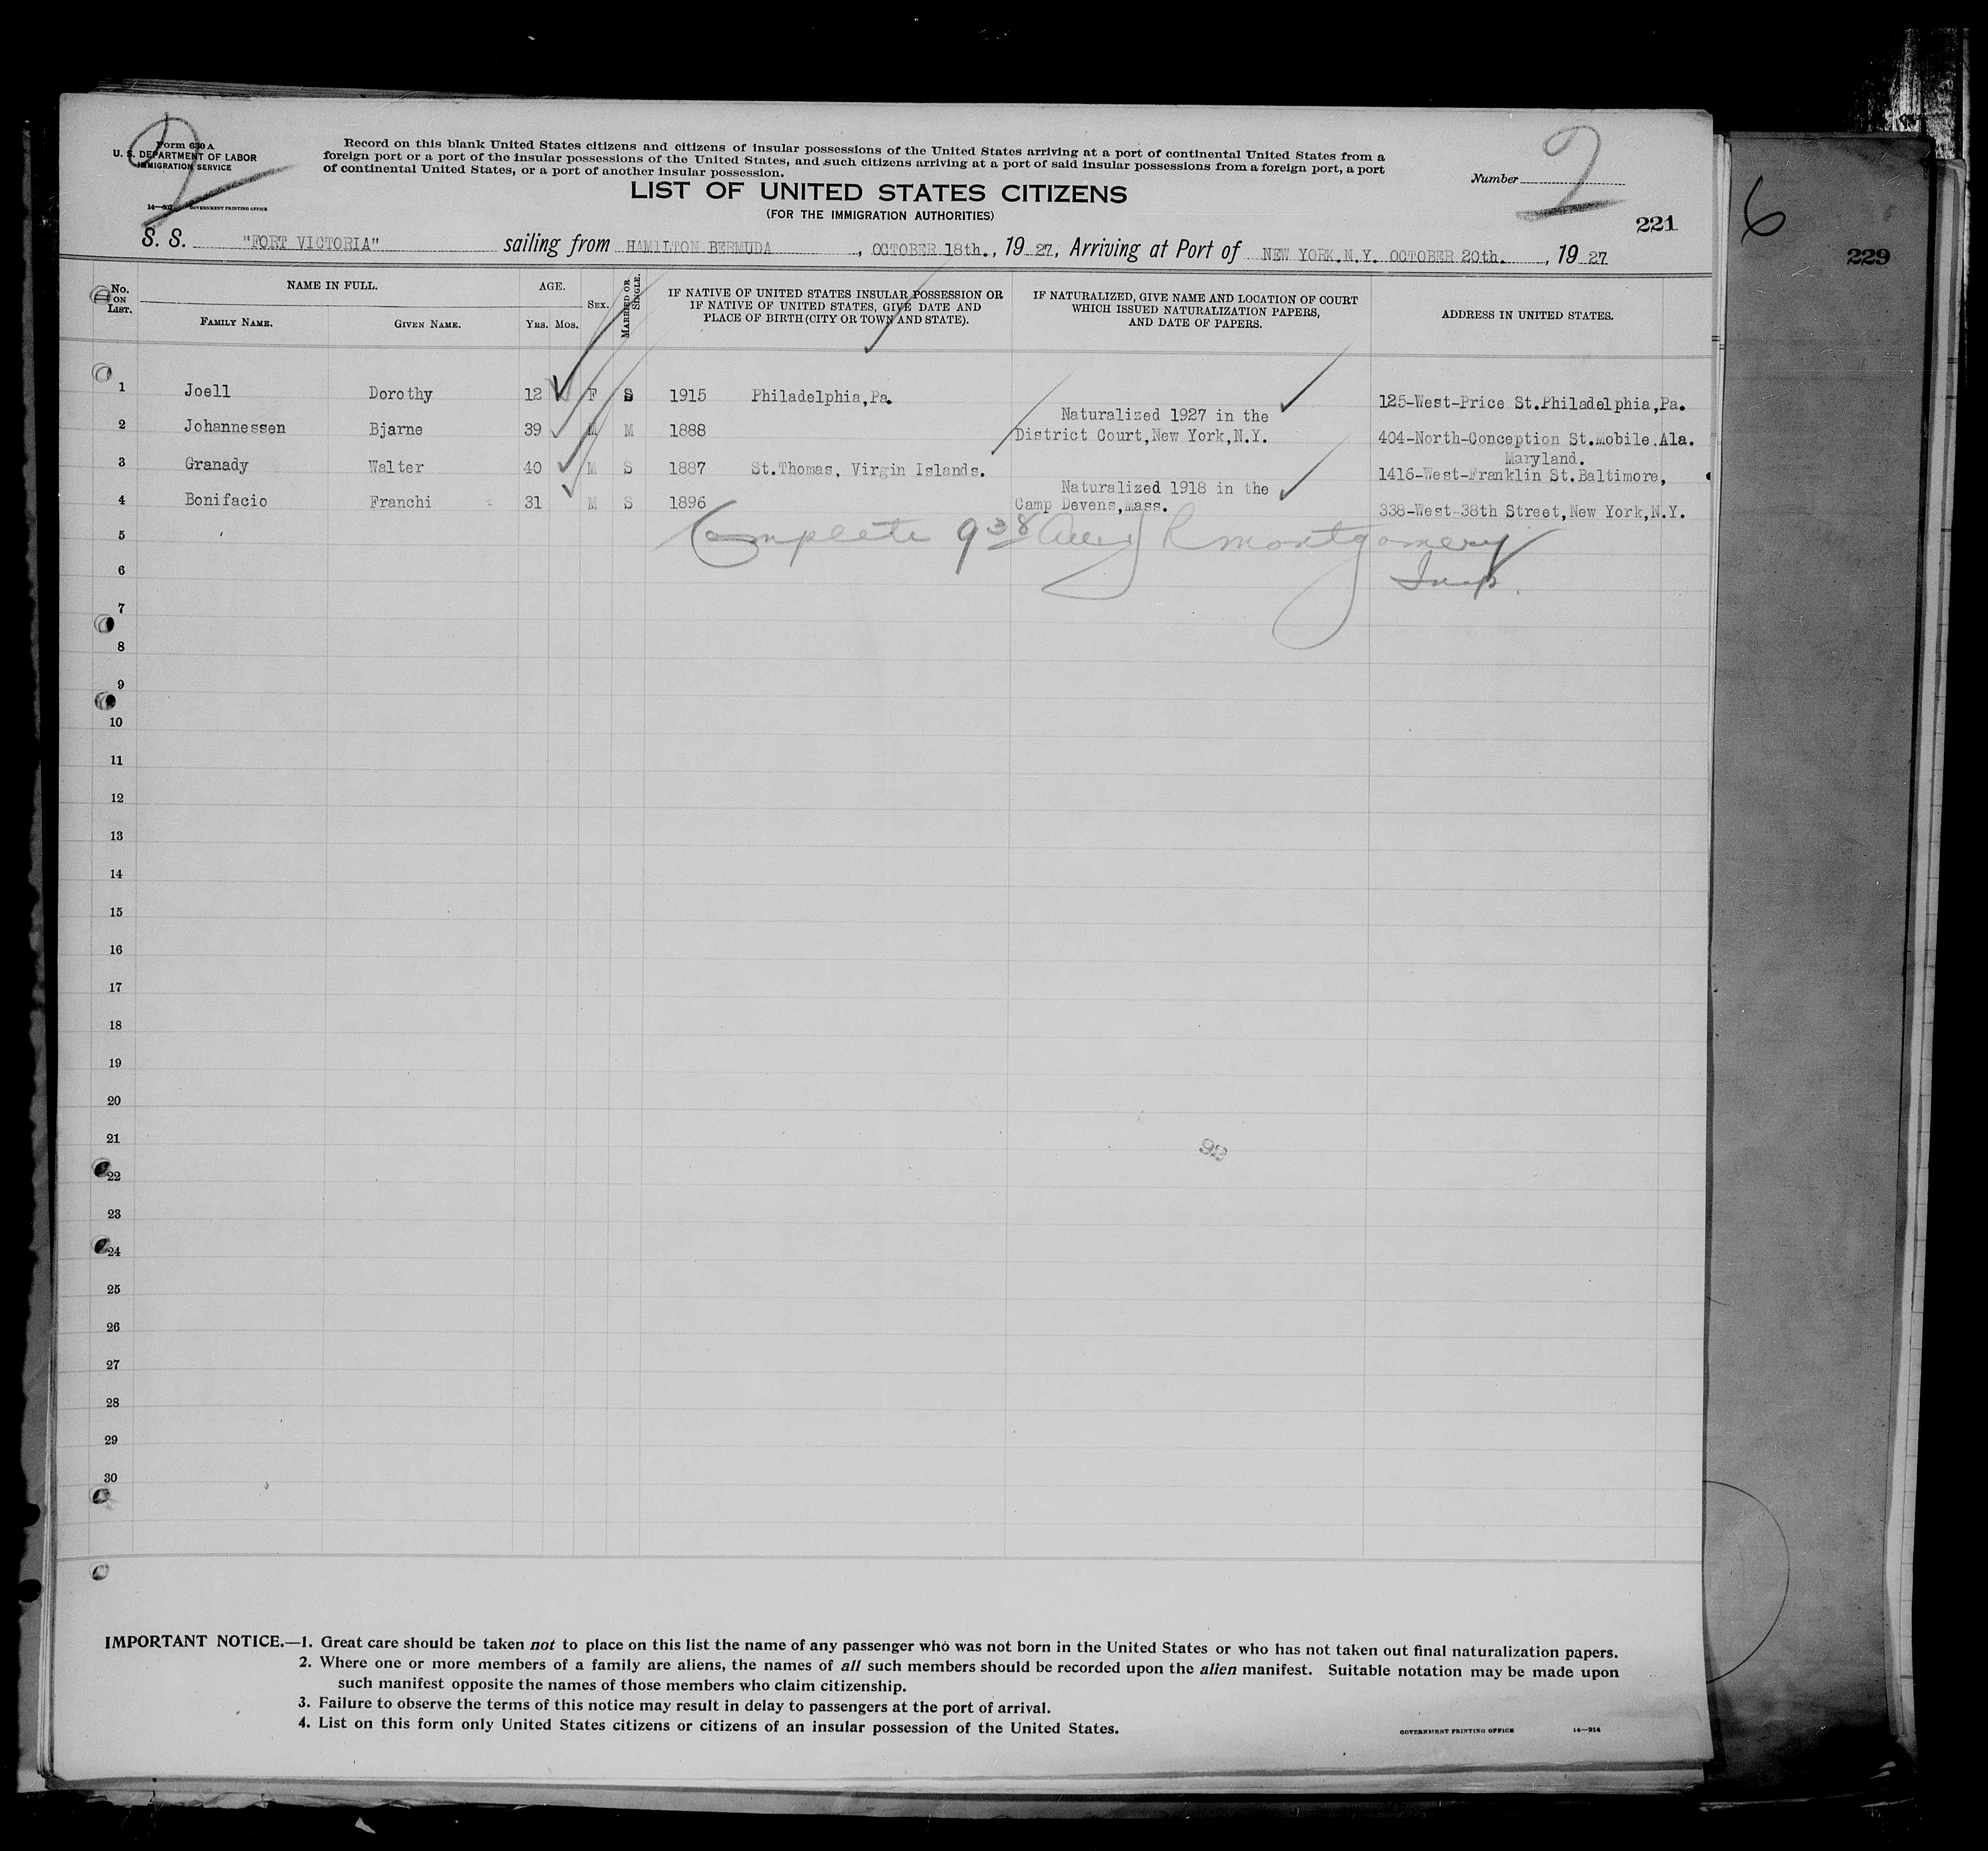 Form 630 A
U. S. DEPARTMENT OF LABOR
IMMIGRATION SERVICE
GOVERNMENT PRINTING OFFICE
2
Record on this blank United States citizens and citizens of insular possessions of the United States arriving at a port of continental United States from a
foreign port or a port of the insular possessions of the United States, and such citizens arriving at a port of said insular possessions from a foreign port, a port
of continental United States, or a port of another insular possession.
Number 2
LIST OF UNITED STATES CITIZENS
(FOR THE IMMIGRATION AUTHORITIES)
221
6
229
S. S. "FORT VICTORIA" sailing from HAMILTON BERMUDA, OCTOBER 18th., 1927, Arriving at Port of NEW YORK.N.Y. OCTOBER 20th., 1927
No. ON LIST.
NAME IN FULL.
FAMILY NAME.
GIVEN NAME.
AGE.
YRS. MOS.
SEX.
MARRIED OR SINGLE.
IF NATIVE OF UNITED STATES INSULAR POSSESSION OR
IF NATIVE OF UNITED STATES, GIVE DATE AND
PLACE OF BIRTH (CITY OR TOWN AND STATE).
IF NATURALIZED, GIVE NAME AND LOCATION OF COURT
WHICH ISSUED NATURALIZATION PAPERS,
AND DATE OF PAPERS.
ADDRESS IN UNITED STATES.
1 Joell Dorothy 12 F S 1915 Philadelphia,Pa. 125-West-Price St.Philadelphia,Pa.
Naturalized 1927 in the
2 Johannessen Bjarne 39 M M 1888 District Court,New York,N.Y. 404-North-Conception St.Mobile.Ala.
Maryland.
3 Granady Walter 40 M S 1887 St.Thomas, Virgin Islands. 1416-West-Franklin St.Baltimore,
Naturalized 1918 in the
4 Bonifacio Franchi 31 M S 1896 Camp Devens,Mass. 338-West-38th Street,New York,N.Y.
5 Complete 9 38 R Montgomery
6 Insp.
7
8
9
10
11
12
13
14
15
16
17
18
19
20
21
92
22
23
24
25
26
27
28
29
30
IMPORTANT NOTICE.—1. Great care should be taken not to place on this list the name of any passenger who was not born in the United States or who has not taken out final naturalization papers.
2. Where one or more members of a family are aliens, the names of all such members should be recorded upon the alien manifest. Suitable notation may be made upon
such manifest opposite the names of those members who claim citizenship.
3. Failure to observe the terms of this notice may result in delay to passengers at the port of arrival.
4. List on this form only United States citizens or citizens of an insular possession of the United States.
GOVERNMENT PRINTING OFFICE 14—914